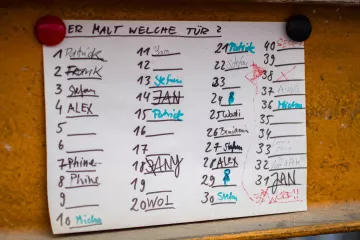 WER MALT WELCHE TÜR?
1 Patrick
2 Frank
3 Stefan
4 ALEX
5
6
7 Phine
8 Phine
9
10 Micha
11
12
13 Stefan
14 JAN
15 Patrick
16
17
18 SANY
19
20 WOL
21 Patrick
22 Stefan
23
24
25 Wasti
26
27 Stefan
28 ALEX
29
30
40
39
38
37
36 Micha
35
34
33
32
31 JAN